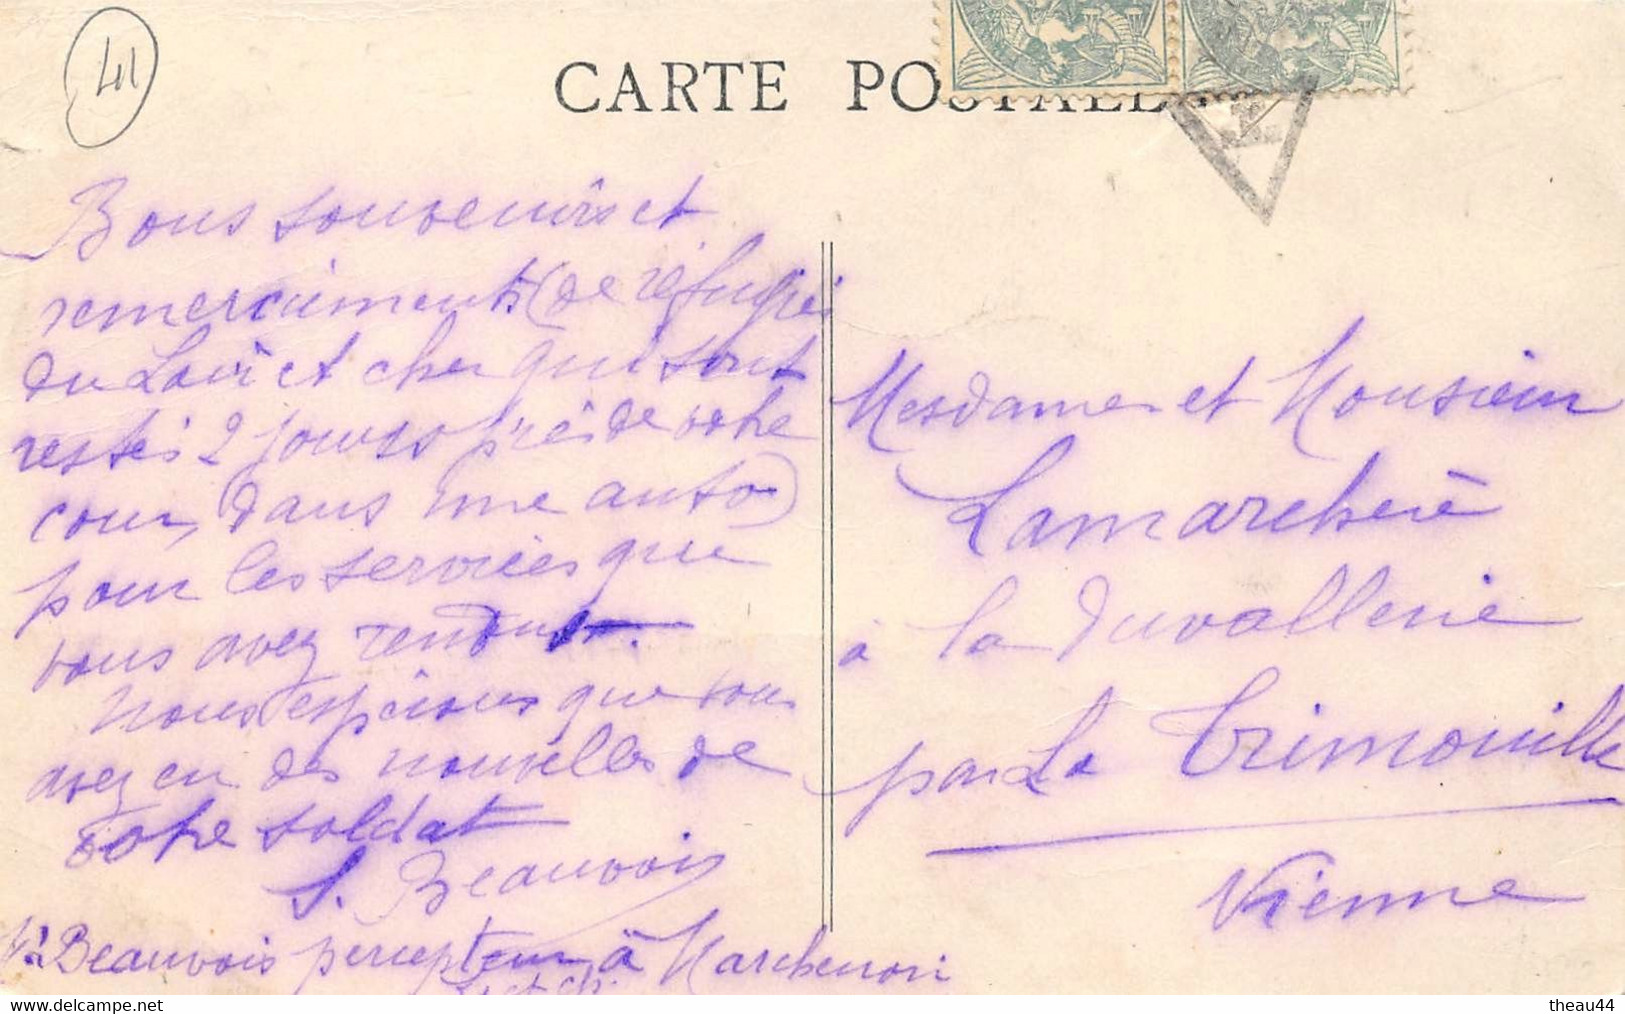 41
CARTE POSTALE
Bons souvenirs et
remerciements (de réfugiés
du Loir et cher qui sont
restés 2 jours près de votre
cour, dans une auto)
pour les services que
vous avez rendus.
Nous espérons que vous
avez eu des nouvelles de
votre soldat
S. Beauvois
Beauvois percepteur à Marchenoir
L et ch.
Mesdames et Monsieur
Lamarchère
à la Duvallerie
par La Trimouille
Vienne
theau44